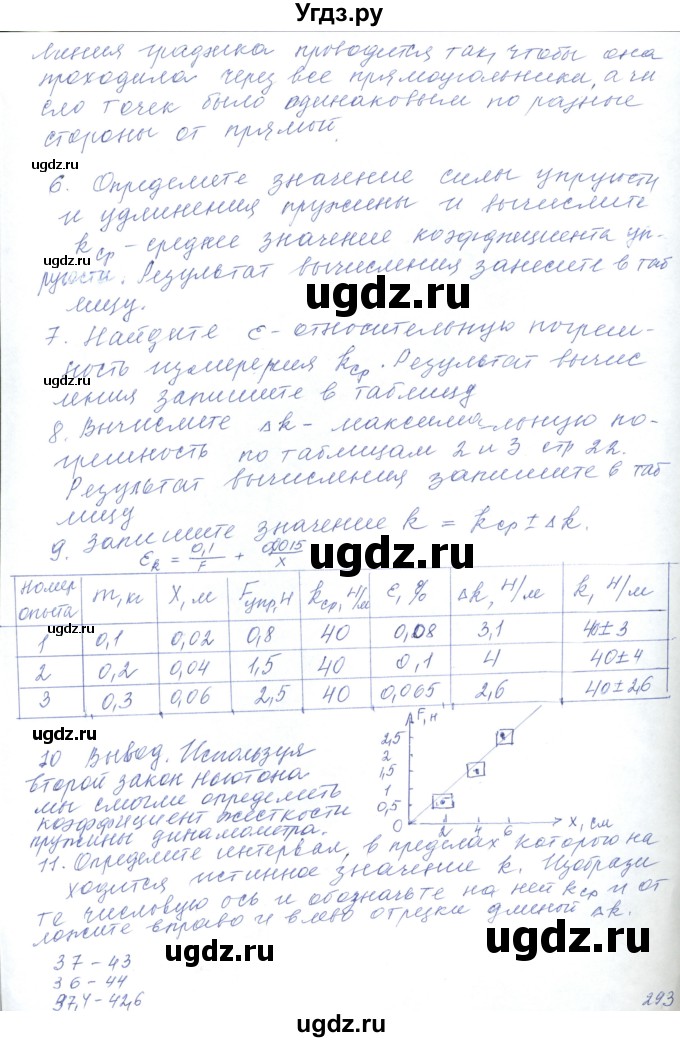 Угдз.ру
линия графика проводится так, чтобы она
проходила через все прямоугольники, а чи
сло точек было одинаковым по разные
стороны от прямый.
ugdz.ru
6. Определите значение силы упругости
и удлинения пружины и вычислите
ugdz.ru
kср - среднее значение коэффициента уп-
ругости. Результат вычисления занесите в таб
лицу.
ugdz.ru
7. Найдите ε - относительную погреш-
ность измерения kср. Результат вычис
ugdz.ru
ления запишите в таблицу
8. Вычислите Δk - максимальную по-
грешность по таблицам 2 и 3 стр 22.
ugdz.ru
Результат вычисления запишите в таб
лицу
9. Запишите значение k = kср ± Δk.
ugdz.ru
εk = 0,1/F + 0,0015/x
ugdz.ru
Номер опыта | m, кг | X, м | Fупр, Н | kср, Н/м | ε, % | Δk, Н/м | k, Н/м
1 | 0,1 | 0,02 | 0,8 | 40 | 0,08 | 3,1 | 40 ± 3
ugdz.ru
2 | 0,2 | 0,04 | 1,5 | 40 | 0,1 | 4 | 40 ± 4
3 | 0,3 | 0,06 | 2,5 | 40 | 0,065 | 2,6 | 40 ± 2,6
10 Вывод. Используя
второй закон Ньютона
мы смогли определить
коэффициент жёсткости
пружины динамометра.
ugdz.ru
F, Н
2,5
2
1,5
1
0,5
0
2 4 6 X, см
11. Определите интервал, в пределах которого на
ходится истинное значение k. Изобрази
те числовую ось и обозначьте на ней kср и от
ложите вправо и влево отрезки длиной Δk.
ugdz.ru
ugdz.ru
37 - 43
36 - 44
97,4 - 42,6
293
ugdz.ru
ugdz.ru